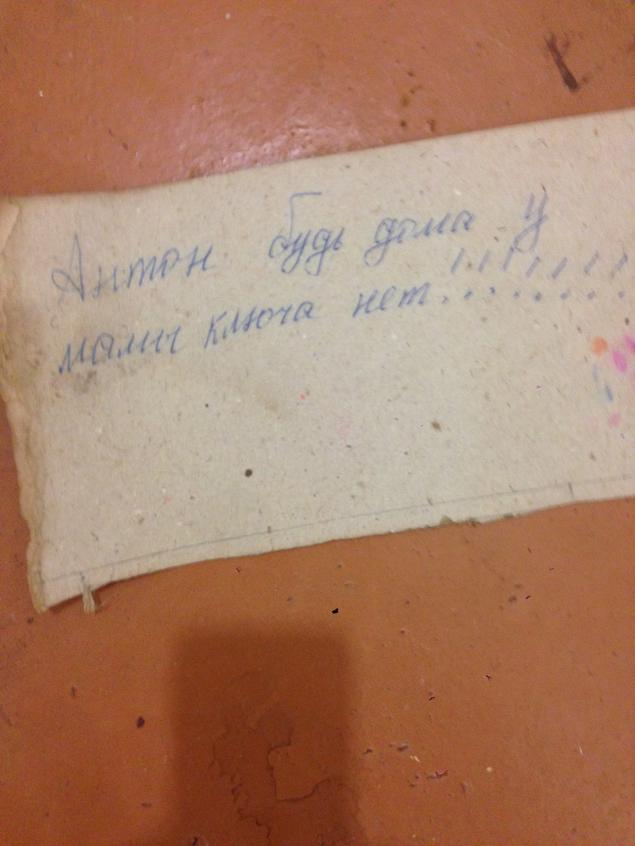 Антон будь дома у
мамы ключа нет!!!!!!!!